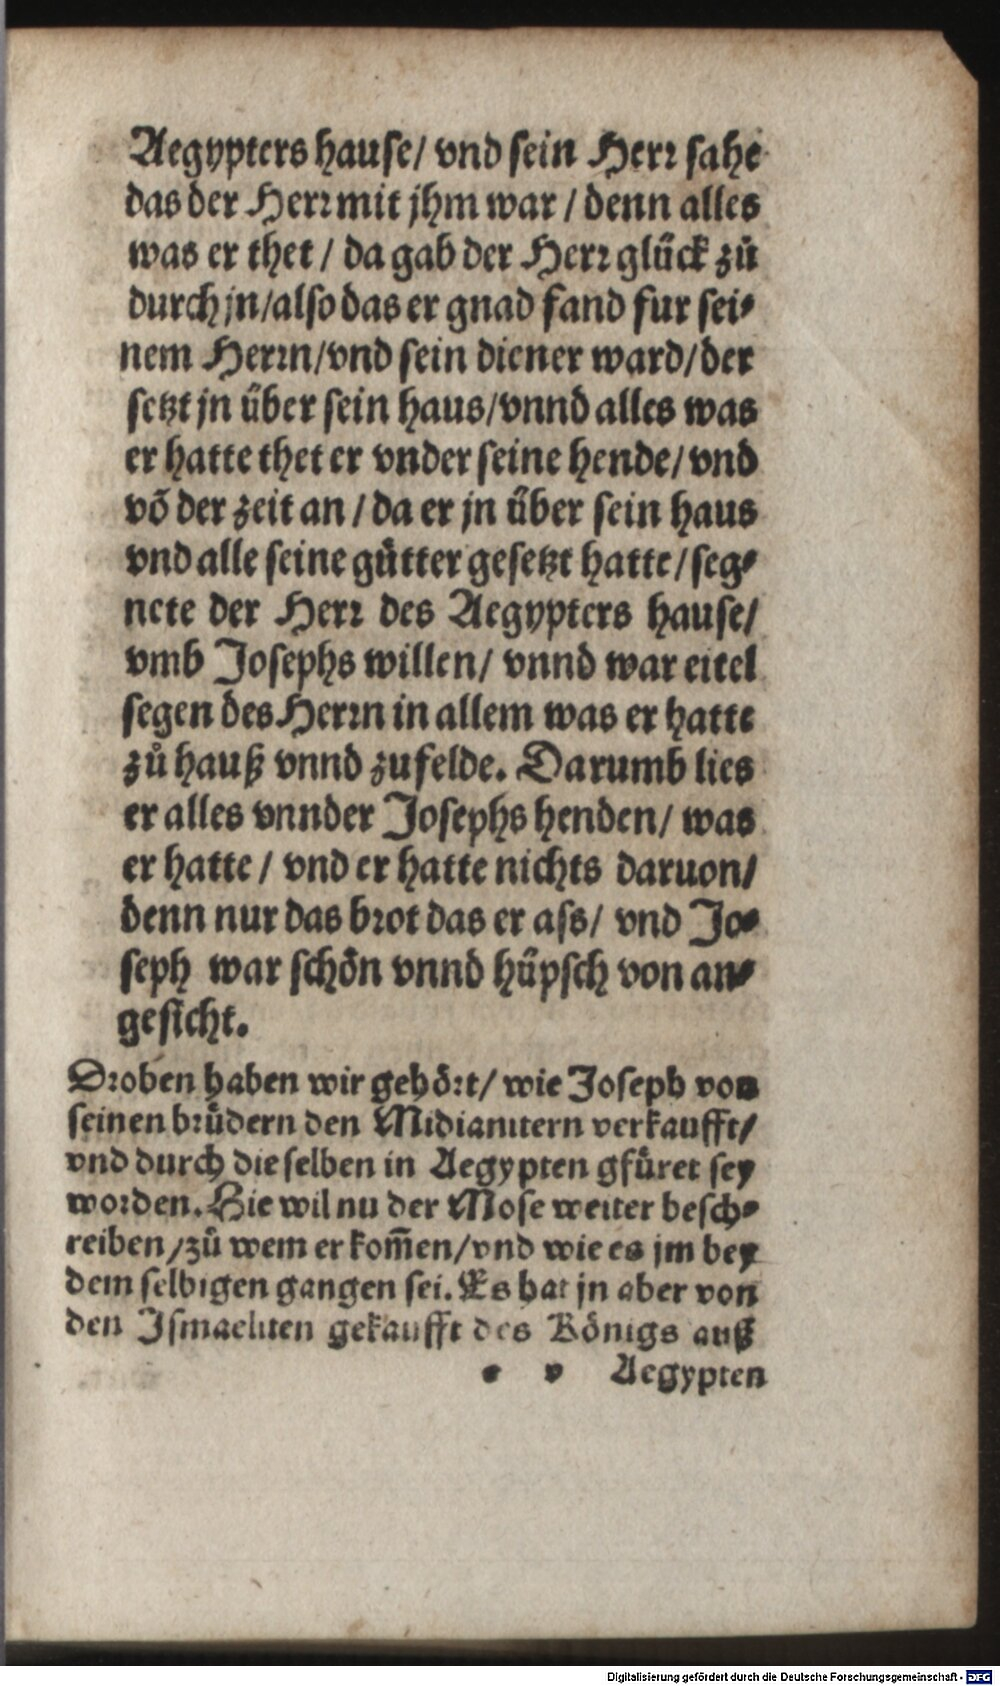 Aegypters hause/ vnd sein Herr sahe
das der Herr mit jhm war / denn alles
was er thet / da gab der Herr glück zů
durch jn/also das er gnad fand fur sei⸗
nem Herrn/vnd sein diener ward/der
setzt jn über sein haus/vnnd alles was
er hatte thet er vnder seine hende/ vnd
võ der zeit an / da er jn über sein haus
vnd alle seine gütter gesetzt hatte/ seg⸗
nete der Herr des Aegypters hause/
vmb Josephs willen/ vnnd war eitel
segen des Herrn in allem was er hatte
zů hauß vnnd zufelde. Darumb lies
er alles vnnder Josephs henden/ was
er hatte / vnd er hatte nichts daruon/
denn nur das brot das er ass/ vnd Jo⸗
seph war schön vnnd hüpsch von an⸗
gesicht.
Droben haben wir gehört/ wie Joseph von
seinen brüdern den Midianitern verkaufft/
vnd durch die selben in Aegypten gfüret sey
worden. Hie wil nu der Mose weiter besch⸗
reiben /zů wem er kom̃en/vnd wie es jm bey
dem selbigen gangen sei. Es hat jn aber von
den Ismaeliten gekaufft des Königs auß
e v Aegypten
Digitalisierung gefördert durch die Deutsche Forschungsgemeinschaft - DFG